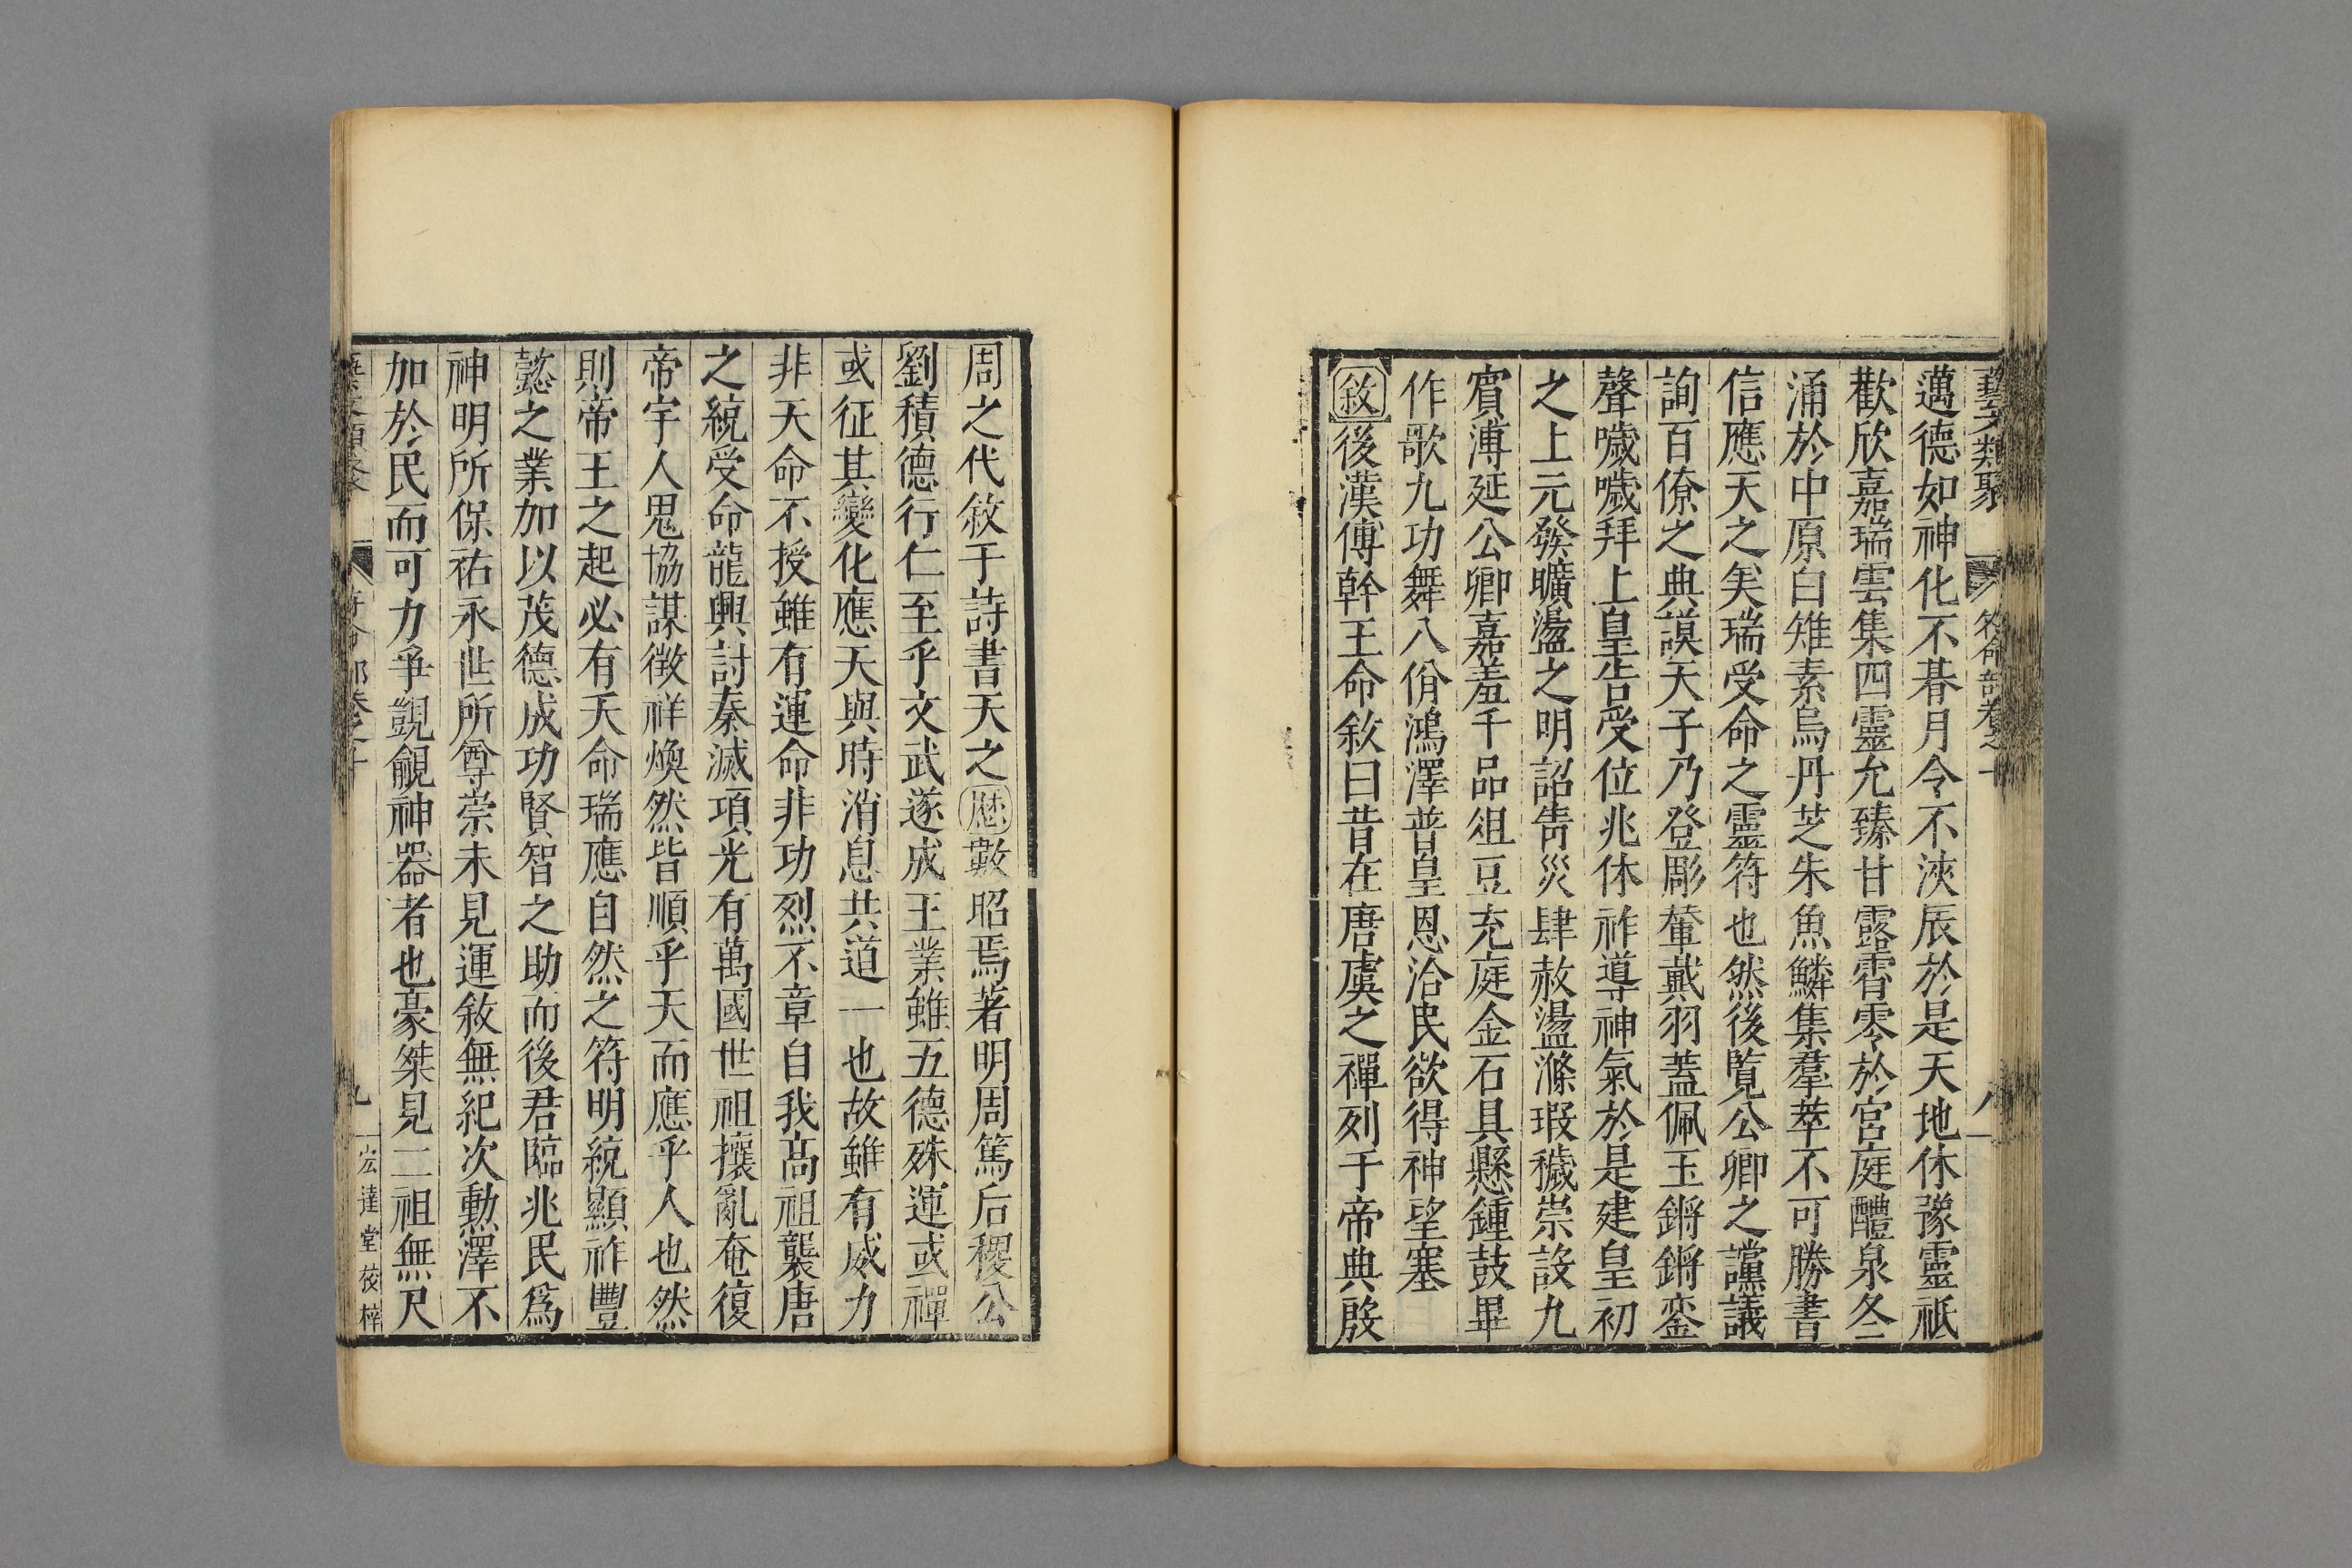 藝文類聚 符命部卷之十 八
邁德如神化不朞月令不浹辰於是天地休豫靈祇
歡欣嘉瑞雲集四靈允臻甘露霄零於宮庭醴泉冬
涌於中原白雉素烏丹芝朱魚鱗集羣萃不可勝書
信應天之矣瑞受命之靈符也然後覽公卿之讜議
詢百僚之典謨天子乃登彫輦戴羽蓋佩玉鏘鏘鑾
聲噦噦拜上皇告受位兆休祚導神氣於是建皇初
之上元發曠盪之明詔眚災肆赦盪滌瑕穢崇設九
賓溥延公卿嘉羞千品俎豆充庭金石具懸鍾鼓畢
作歌九功舞八佾鴻澤普皇恩洽民欲得神望塞
敘後漢傅幹王命敘曰昔在唐虞之禪列于帝典殷
周之代敘于詩書天之歷數昭焉著明周篤后稷公
劉積德行仁至乎文武遂成王業雖五德殊運或禪
或征其變化應天與時消息共道一也故雖有威力
非天命不授雖有運命非功烈不章自我高祖襲唐
之統受命龍興討秦滅項光有萬國世祖攘亂奄復
帝宇人鬼協謀徵祥煥然皆順乎天而應乎人也然
則帝王之起必有天命瑞應自然之符明統顯祚豐
懿之業加以茂德成功賢智之助而後君臨兆民爲
神明所保祐永世所尊崇未見運敘無紀次勳澤不
加於民而可力爭覬覦神器者也豪桀見二祖無尺
九 宏達堂 梓